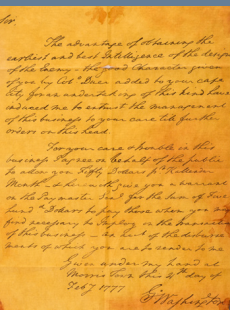 Sir,
The advantage of obtaining the
earliest and best Intelligence of the designs
of the Enemy - the good Character given
of you by Colo. Duer added to your capa
city for an undertaking of this kind have
induced me to entrust the management
of this business to your care till further
orders on this head.
For your care & trouble in this
business I agree on behalf of the public
to allow you Fifty Dollars pr Kallendar
Month - & herewith give you a warrant
on the Paymaster Genl for the sum of Five
hund'd Dollars to pay those whom you
find necessary to Imploy in the transaction
of this business - an acct of the disburse
ments of which you are to render to me
Given under my hand at
Morris Town this 4th day of
Feby 1777
Go Washington